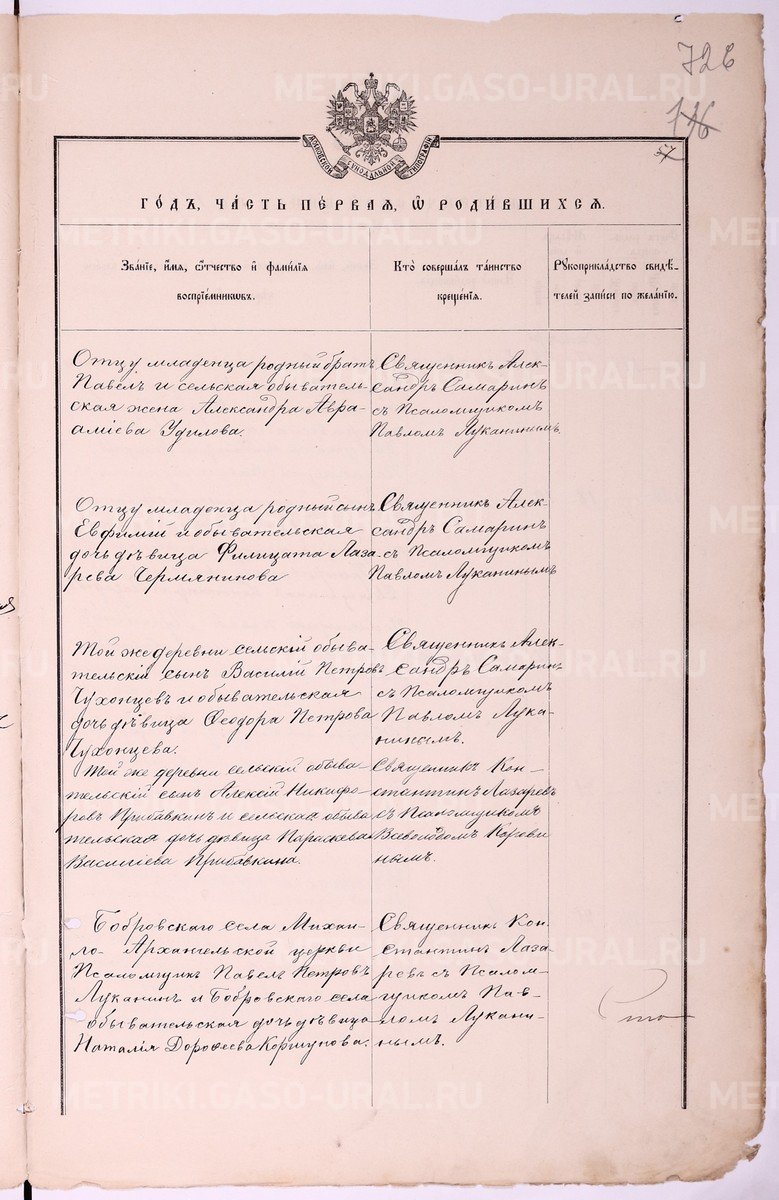 726
116
57
МОСКОВСКОЙ СѴНОДАЛЬНОЙ ТИПОГРАФІИ
ГО́ДЪ, ЧА́СТЬ ПЕ́РВАЯ, Ѽ РОДИ́ВШИХСЯ.
Зва́нїе, и҆́мя, ѻ҆́тчество и҆ фами́лїя
воспрїе́мникѡвъ.
Кто̀ соверша́лъ та́инство
креще́нїя.
Рꙋкоприкла́дство свидѣ́-
телей за́писи по жела́нїю.
Отцу младенца родный братъ
Павелъ и сельская обыватель-
ская жена Александра Авра-
амiева Удилова.
Священникъ Алек-
сандръ Самаринъ
съ Псаломщикомъ
Павломъ Луканинымъ
Отцу младенца родный сынъ
Евфимій и обывательская
дочь дѣвица Филицата Лаза-
рева Чермянинова
Священникъ Алек-
сандръ Самаринъ
съ Псаломщикомъ
Павломъ Луканинымъ
Той же деревни сельскій обыва-
тельскій сынъ Василій Петровъ
Чухонцевъ и обывательская
дочь дѣвица Ѳеодора Петрова
Чухонцева.
Священникъ Алек-
сандръ Самаринъ
съ Псаломщикомъ
Павломъ Лука-
нинымъ.
Той же деревни сельскій обыва-
тельскій сынъ Алексій Никифо-
ровъ Прибавкинъ и сельская обыва-
тельская дочь дѣвица Параскева
Василіева Прибавкина.
Священникъ Кон-
стантинъ Лазаревъ
съ Псаломщикомъ
Всеволодомъ Корови
нымъ.
Бобровскаго села Михаи-
ло-Архангельской церкви
Псаломщикъ Павелъ Петровъ
Луканинъ и Бобровскаго села
обывательская дочь дѣвица
Наталія Дороѳеева Коршунова.
Священникъ Кон-
стантинъ Лаза-
ревъ съ Псалом-
щикомъ Пав-
ломъ Лукани-
нымъ.
METRIKI.GASO-URAL.RU